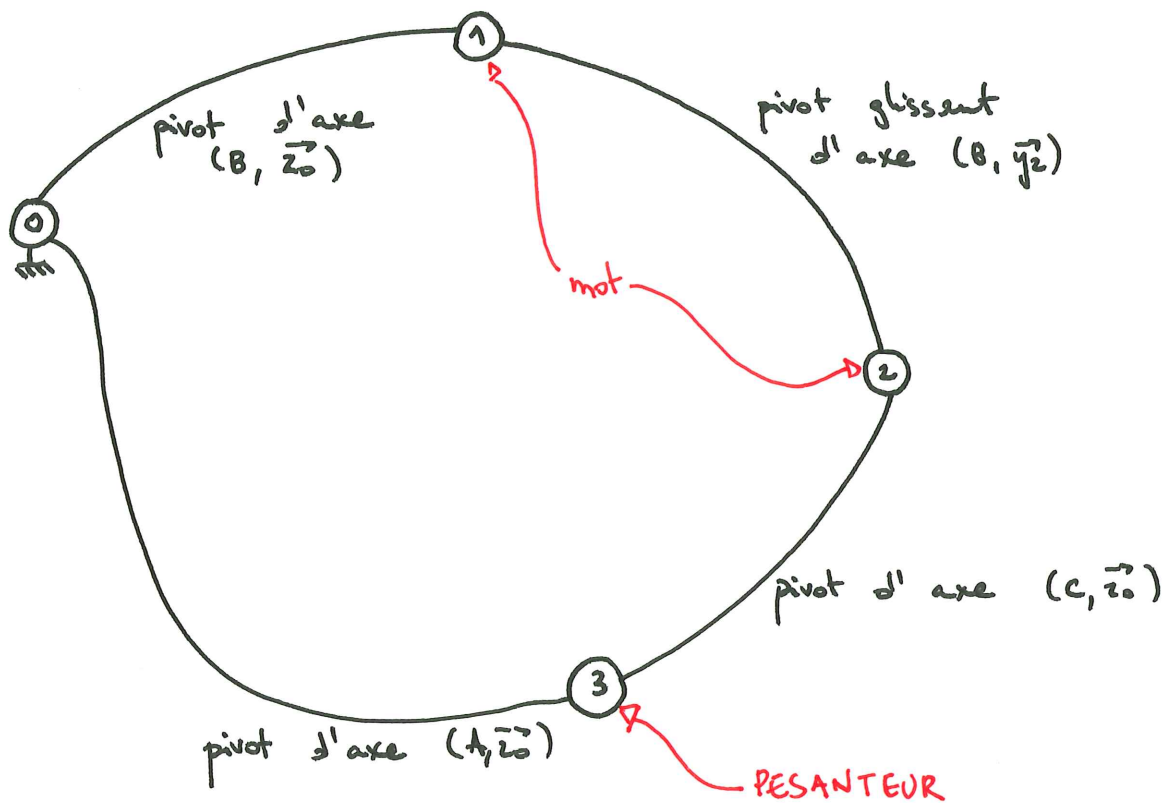 1
pivot d'axe
(B, z₀)
pivot glissant
d'axe (B, y₂)
0
mot
2
pivot d'axe (C, z₀)
3
pivot d'axe (A, z₀)
PESANTEUR